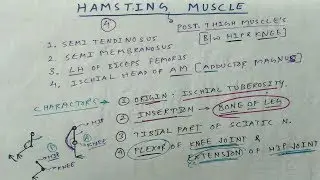 HAMSTING MUSCLE
④
POST. THIGH MUSCLE'S
[B|w HIP & KNEE]
1. SEMI TENDINOSUS
2. SEMI MEMBRANOSUS
3. LH OF BICEPS FEMORIS
4. ISCHIAL HEAD OF AM [ADDUCTOR MAGNUS]
CHARACTORS → ① ORIGIN : ISCHIAL TUBEROSITY.
② INSERTION → BONG OF LEG
③ TIBIAL PART OF SCIATIC N.
④ FLEXOR OF KNEE JOINT &
EXTENSION OF HIP JOINT
HIP
KNEE
HIP
KNEE